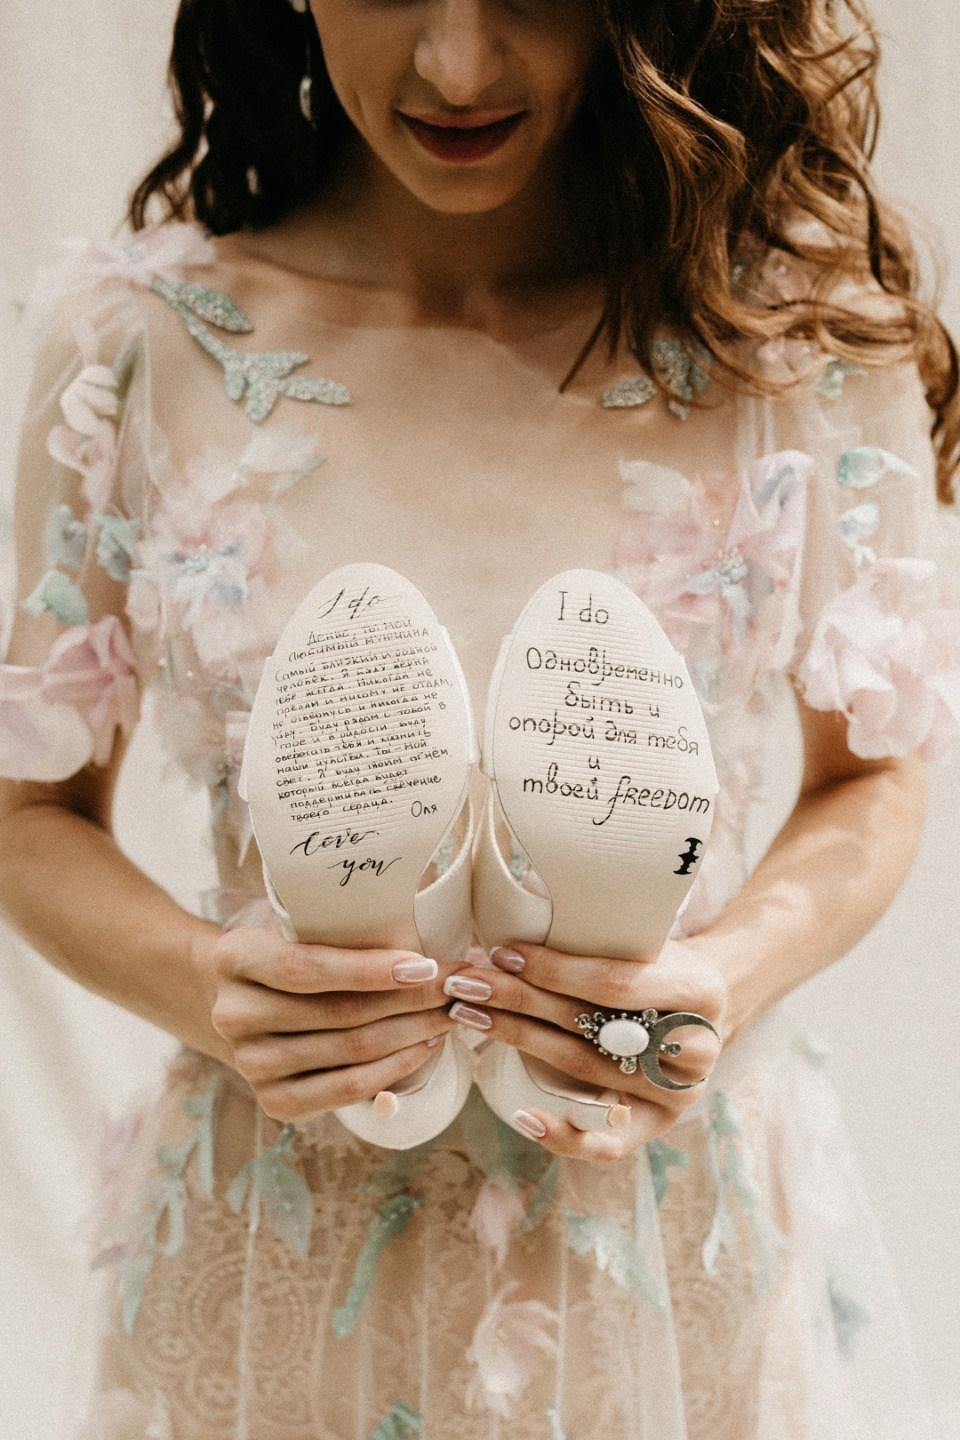 I do
Денис, ты мой
любимый мужчина
Самый близкий и родной
человек. Я буду верна
тебе всегда. Никогда не
предам и никому не отдам,
не отвернусь и никогда не
уйду. Буду рядом с тобой в
горе и в радости. Буду
оберегать тебя и хранить
наши чувства. Ты - мой
свет. Я буду твоим огнём
который всегда будет
поддерживать свечение
твоего сердца.
Оля
Love
you
I do
Одновременно
быть и
опорой для тебя
и
твоей freedom